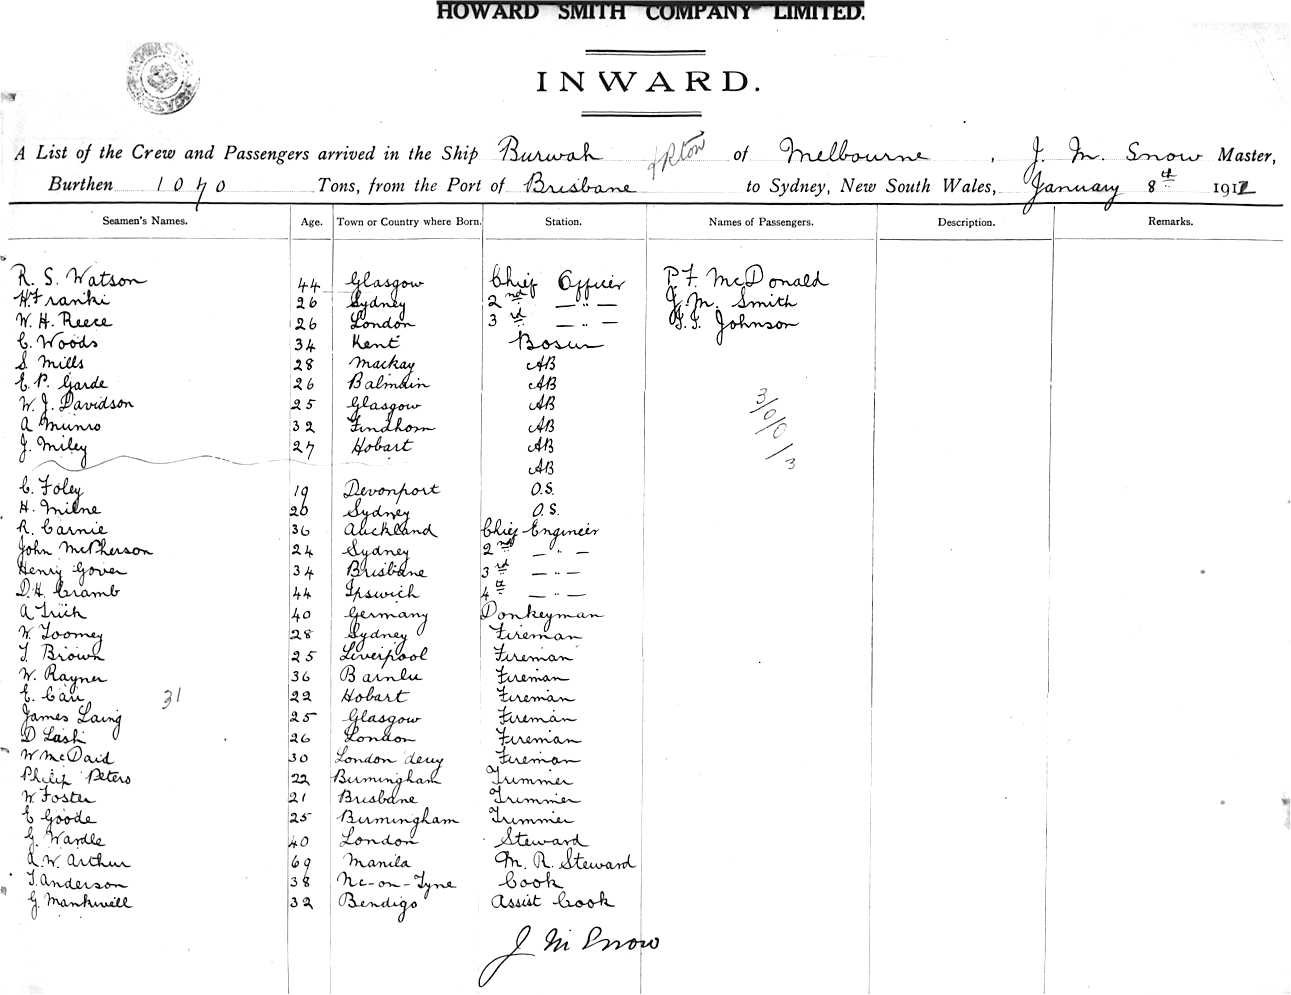 HOWARD SMITH COMPANY LIMITED.
INWARD.
A List of the Crew and Passengers arrived in the Ship Burwah of Melbourne, J. M. Snow Master,
Burthen 1070 Tons, from the Port of Brisbane to Sydney, New South Wales, January 8th 1912
Seamen's Names. Age. Town or Country where Born. Station. Names of Passengers. Description. Remarks.
R. S. Watson 44 Glasgow Chief Officer P. F. McDonald
H. Franki 26 Sydney 2nd — " — J. M. Smith
W. H. Reece 26 London 3rd — " — Johnson
C. Woods 34 Kent Bosun
S Mills 28 Mackay AB
E. P. Garde 26 Balmain AB
W. J. Davidson 25 Glasgow AB
A Munro 32 Findhorn AB
J. Miley 27 Hobart AB
AB
C. Foley 19 Devonport O.S.
H. Milne 20 Sydney O.S.
R. Carnie 36 Auckland Chief Engineer
John McPherson 24 Sydney 2nd — " —
Henry Gover 34 Brisbane 3rd — " —
D. H. Cramb 44 Ipswich 4th — " —
A 40 Germany Donkeyman
W. Toomey 28 Sydney Fireman
T. Brown 25 Liverpool Fireman
W. Rayner 36 Fireman
E. 31 22 Hobart Fireman
James Laing 25 Glasgow Fireman
D Lash 26 London Fireman
W McDaid 30 London derry Fireman
Philip Peters 22 Birmingham Trimmer
W. Foster 21 Brisbane Trimmer
E Goode 25 Birmingham Trimmer
G. Wardle 40 London Steward
A. W. Arthur 69 Manila M. R. Steward
T. Anderson 38 Nc-on-Tyne Cook
G. Mankwell 32 Bendigo Assist Cook
3/0/0/3
J M Snow